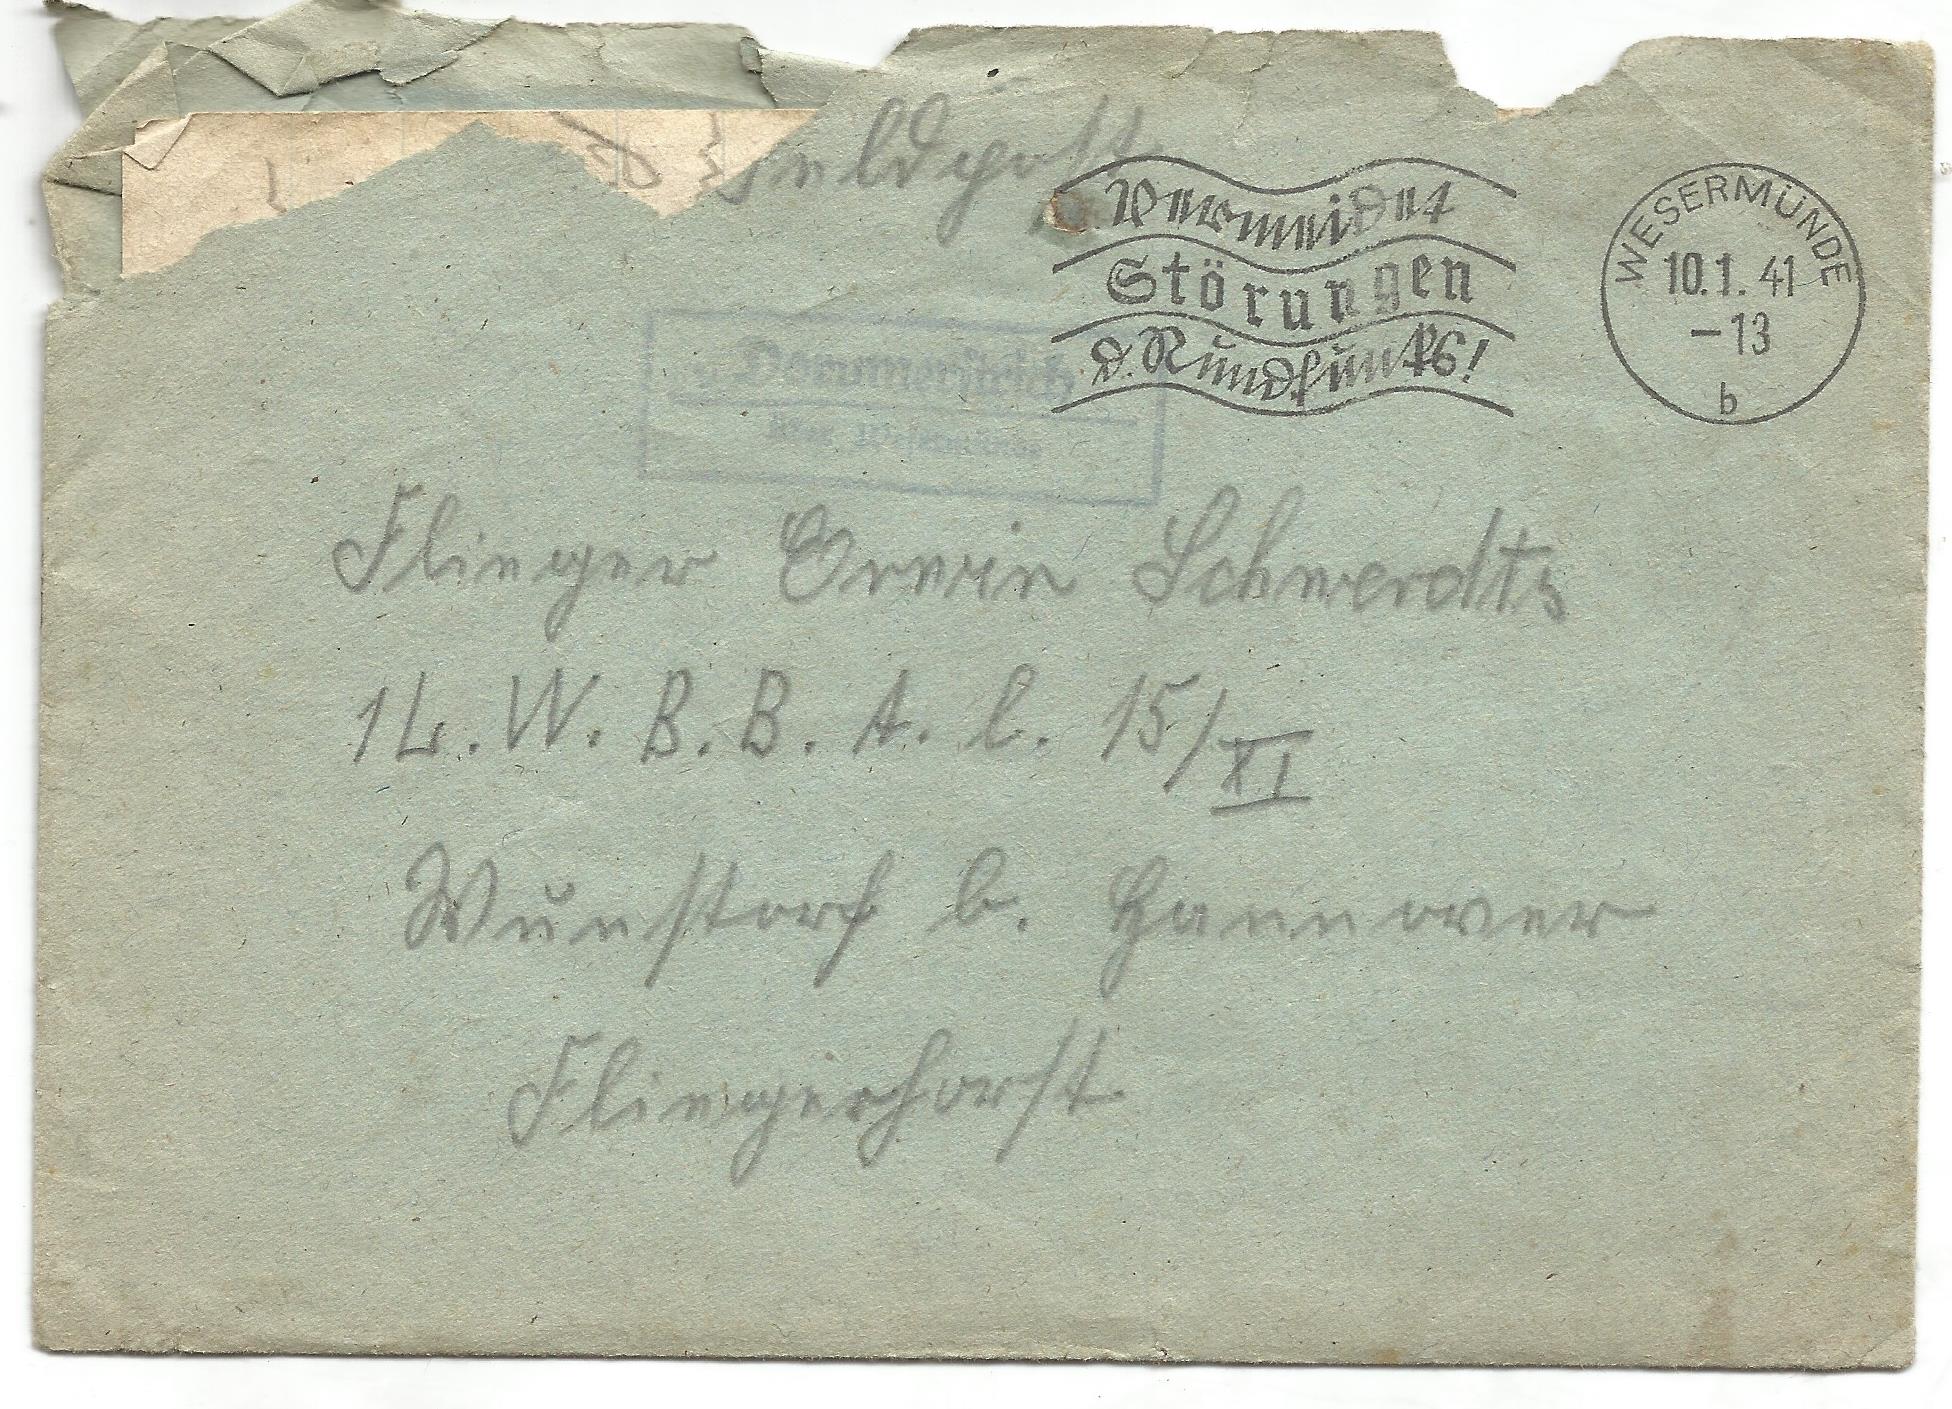 Feldpost
Vermeidet
Störungen
d. Rundfunks!
WESERMÜNDE
10.1.41
-13
b
über Wesermünde
Flieger Erwin Schwerdt,
1 L. W. B. B. A. l. 15/XI
Wunstorf b. Hannover
Fliegerhorst